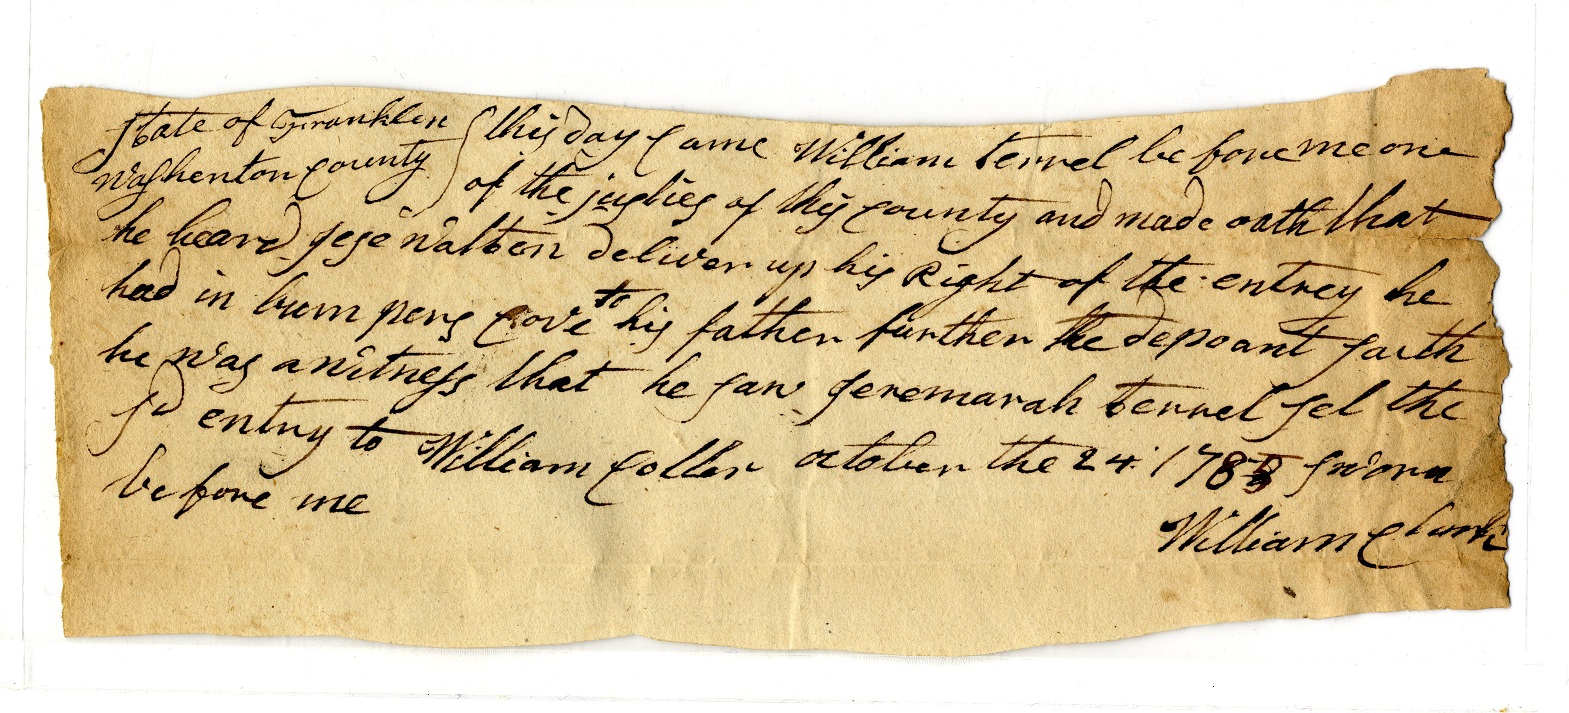 State of Franklen
Washenton County
this day Came William terrel before me one
of the justies of this county and made oath that
he heard jese walten deliver up his Right of the entrey he
had in bumpers Cove to his father further the depoant saith
he was a witness that he saw Jeremarah terrel sel the
sd entry to William Coller october the 24 178 sworn
before me
William Clark